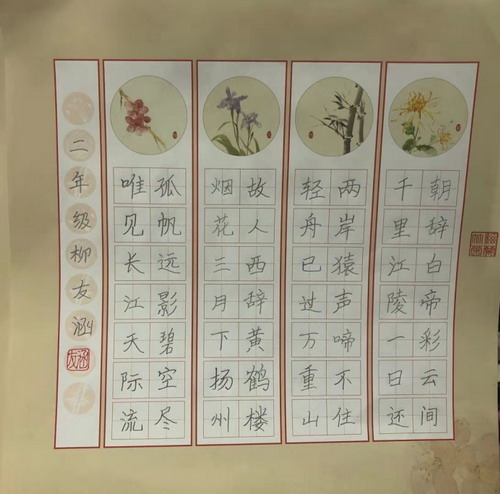 朝辞白帝彩云间
千里江陵一日还
两岸猿声啼不住
轻舟已过万重山
故人西辞黄鹤楼
烟花三月下扬州
孤帆远影碧空尽
唯见长江天际流
二年级柳友涵